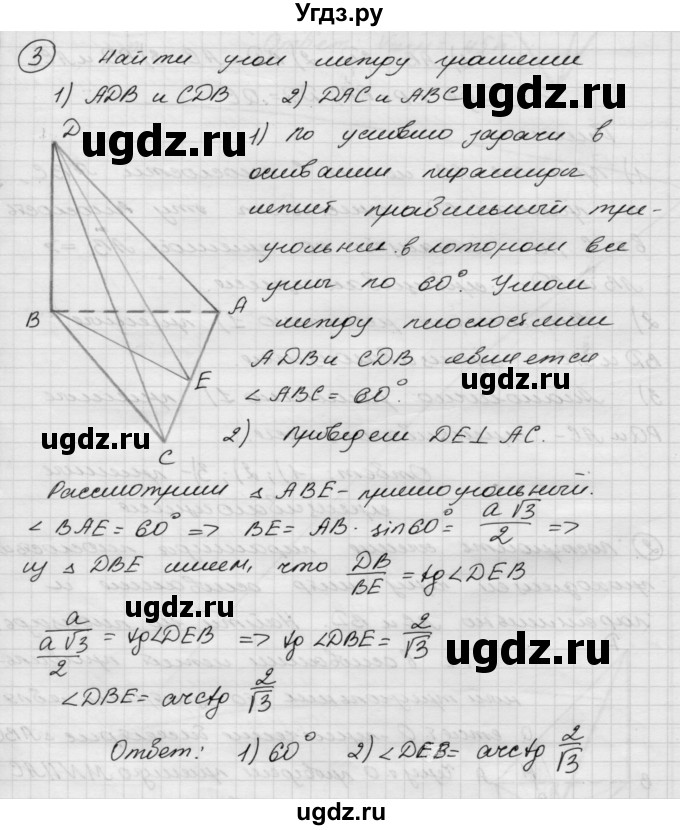 Угдз.ру
③ Найти угол между гранями
1) ADB и CDB 2) DAC и ABC
ugdz.ru ugdz.ru
D
1) По условию задачи в
основании пирамиды
лежит правильный тре-
угольник в котором все
углы по 60°. Углом
B A
между плоскостями
ADB и CDB является
E
ugdz.ru
∠ABC = 60°.
ugdz.ru
C
2) Проведем DE⊥AC.
Рассмотрим △ABE - прямоугольный.
∠BAE = 60° => BE = AB · sin60° = a√3/2 =>
ugdz.ru
из △DBE имеем, что DB/BE = tg∠DEB
ugdz.ru
a/(a√3/2) = tg∠DEB => tg∠DBE = 2/√3
ugdz.ru
∠DBE = arctg 2/√3
Ответ: 1) 60° 2) ∠DEB = arctg 2/√3
ugdz.ru ugdz.ru
ugdz.ru